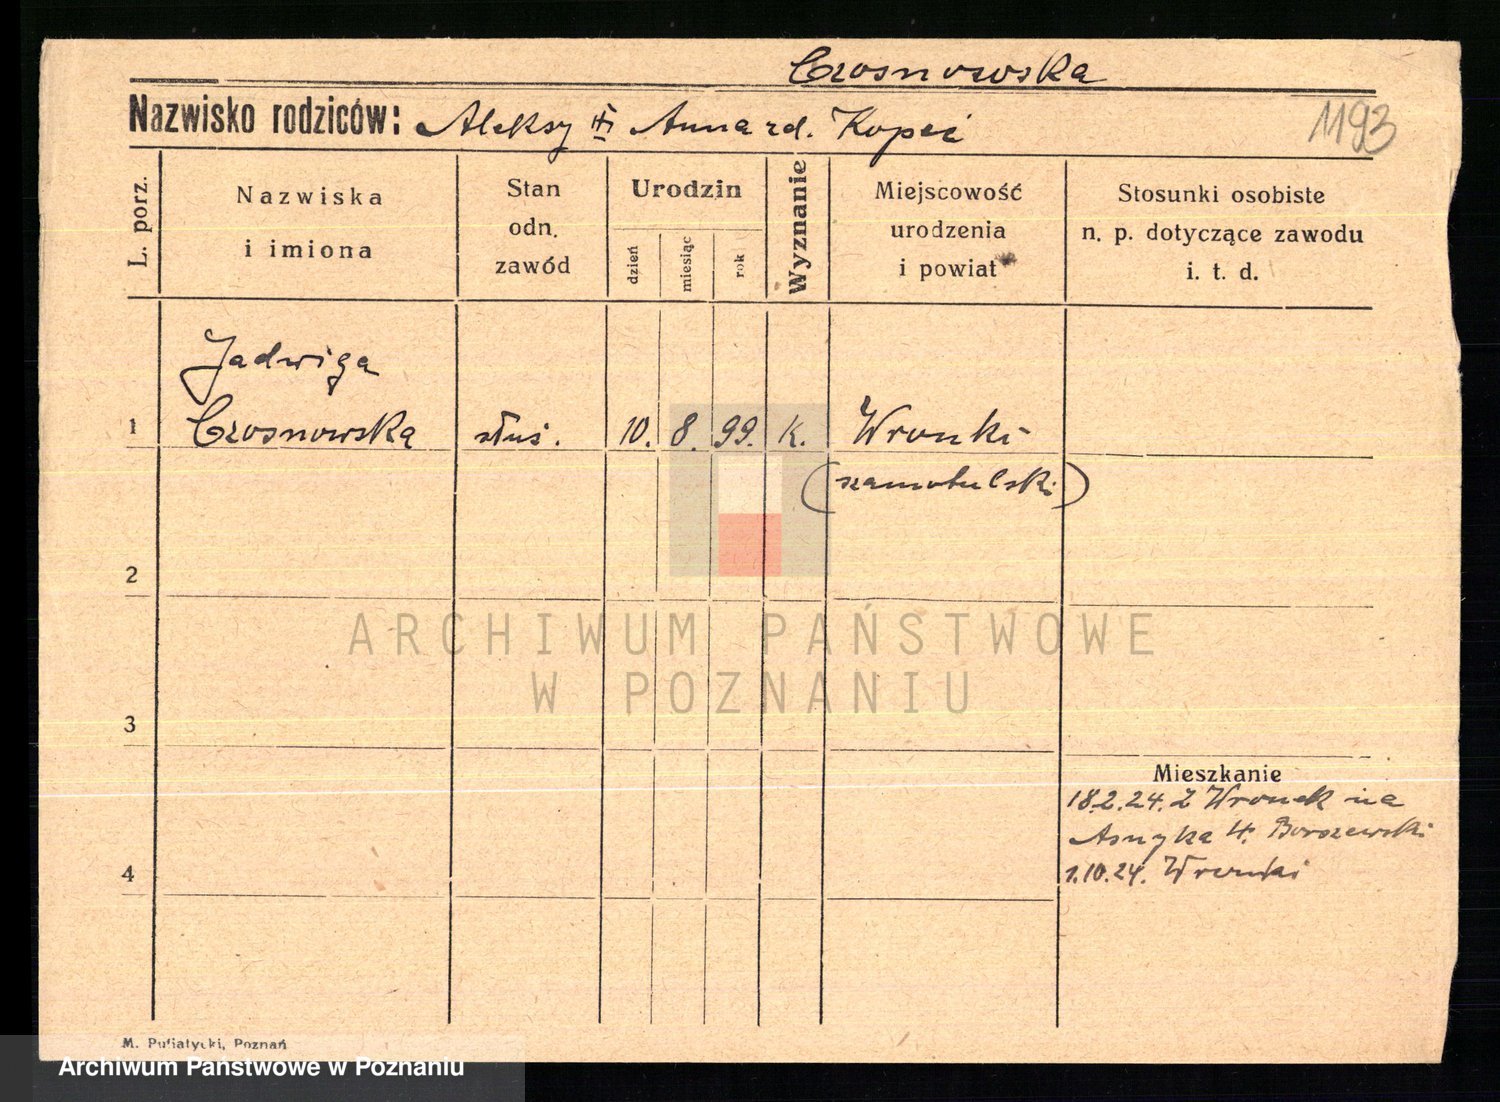 Czosnowska
Nazwisko rodziców: Aleksy Anna rd. Kopeć
1193
L. porz.
Nazwiska
i imiona
Stan
odn.
zawód
Urodzin
dzień
miesiąc
rok
Wyznanie
Miejscowość
urodzenia
i powiat
Stosunki osobiste
n. p. dotyczące zawodu
i. t. d.
Jadwiga
1 Czosnowska służ. 10. 8. 99. k. Wronki
(szamotulski)
2
ARCHIWUM PAŃSTWOWE
W POZNANIU
3
Mieszkanie
18.2.24. Z Wronek na
Asnyka 4. Borszewski
4
1.10.24. Wronki
M. Putiatycki, Poznań
Archiwum Państwowe w Poznaniu